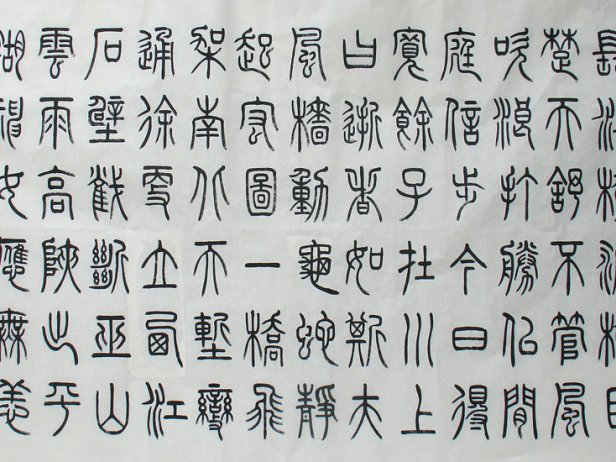 長江橫渡極目
楚天舒不管風
吹浪打勝似閒
庭信步今日得
寬餘子在川上
曰逝者如斯夫
風檣動龜蛇靜
起宏圖一橋飛
架南北天塹變
通途更立西江
石壁截斷巫山
雲雨高峽出平
湖神女應無恙